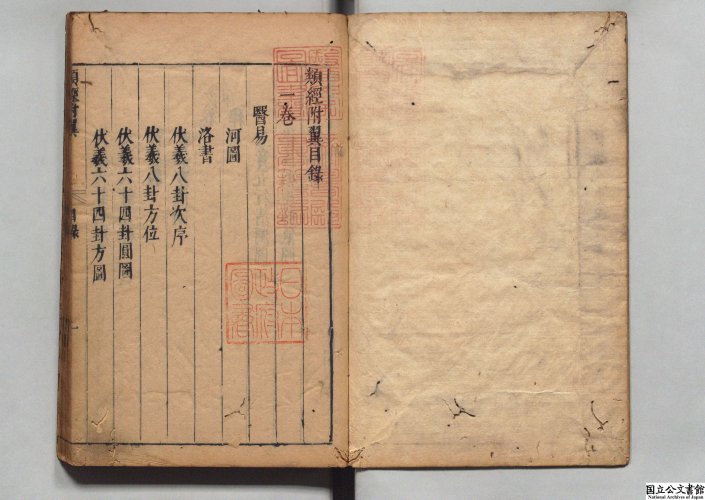 類經附翼目錄
一卷
醫易
河圖
洛書
伏羲八卦次序
伏羲八卦方位
伏羲六十四卦圓圖
伏羲六十四卦方圖
類經附翼
目錄
日本
政府
圖書
国立公文書館
National Archives of Japan